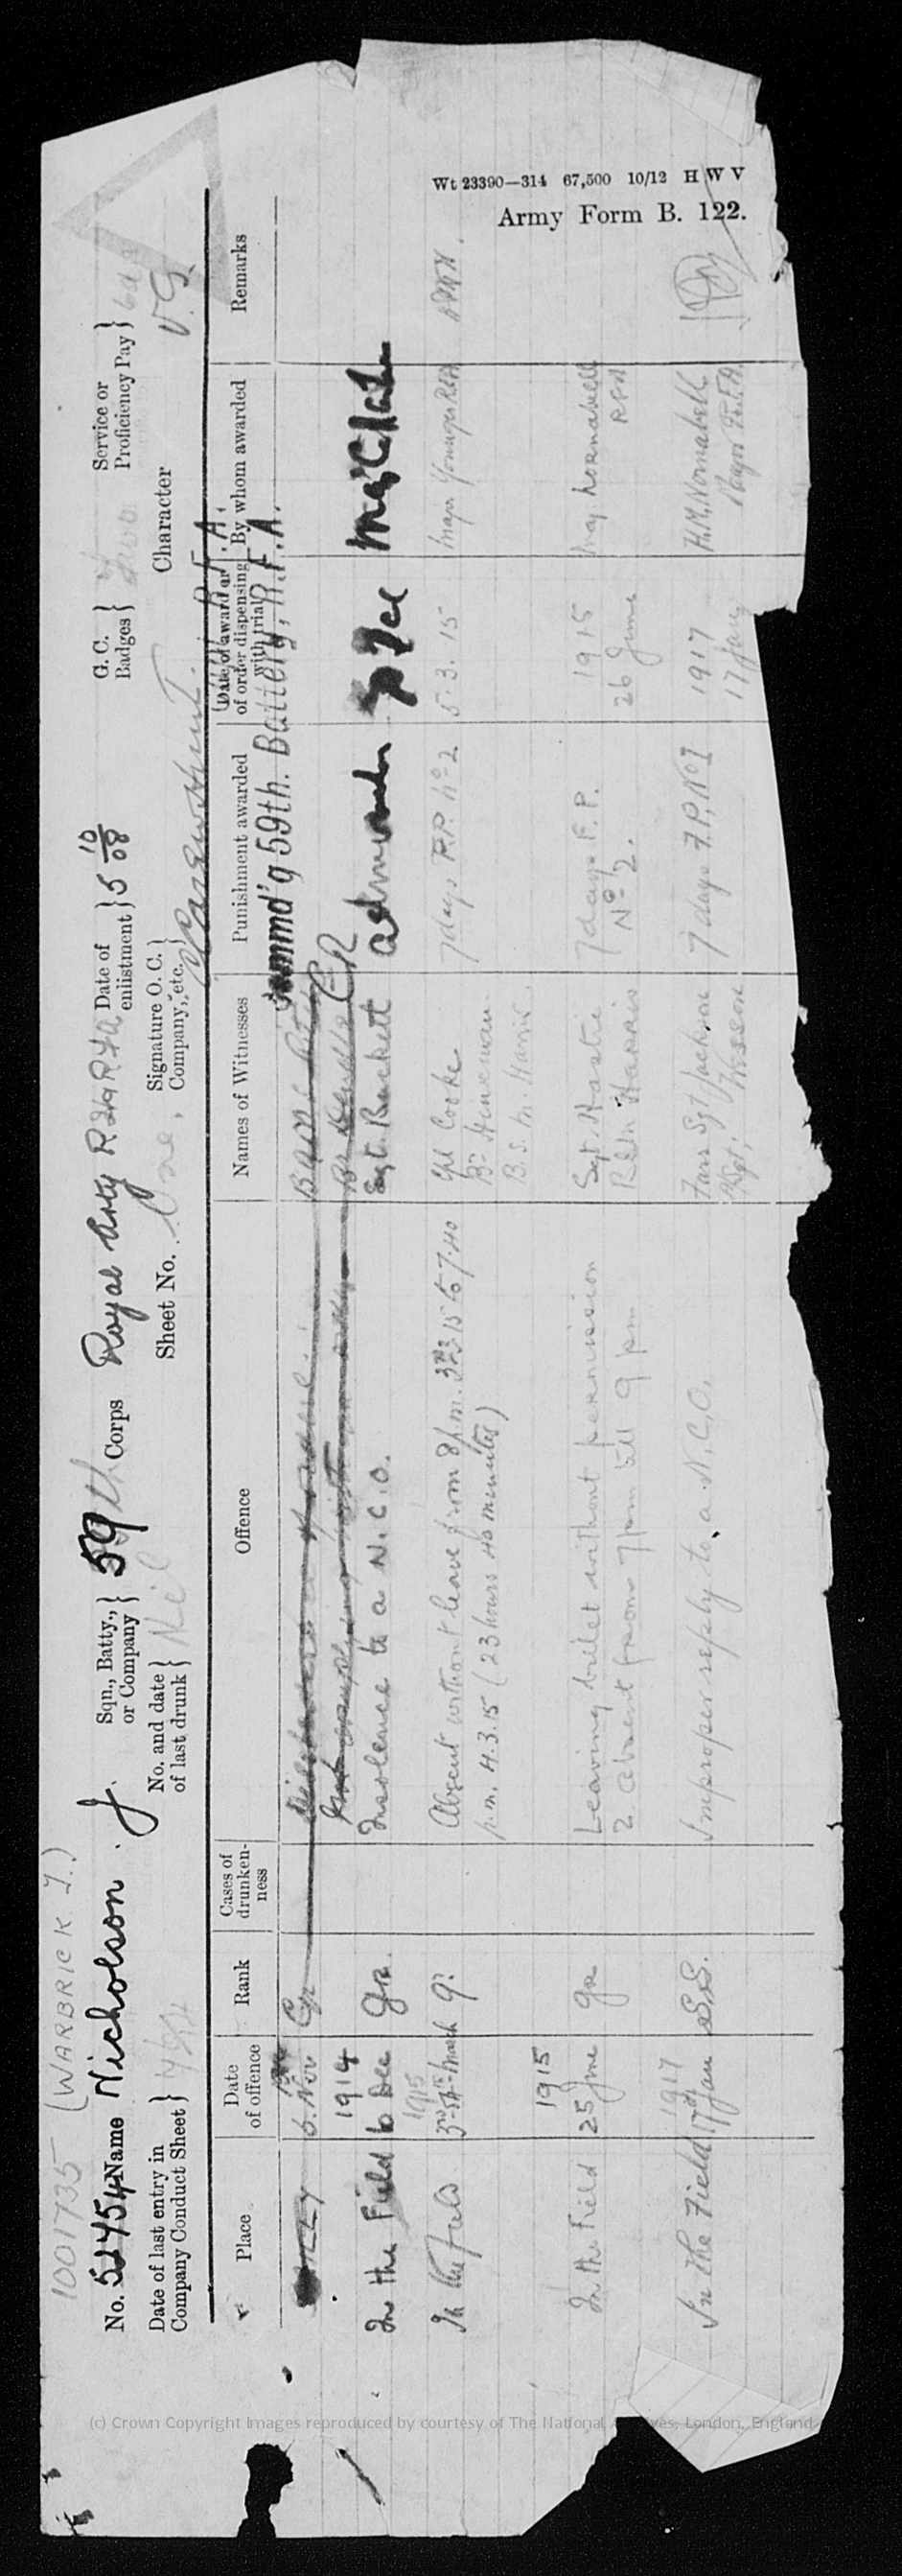 Wt 23390—314 67,500 10/12 H W V
Army Form B. 122.
1001735 (WARBRICK J.)
No. 52454 Name Nicholson. J. Sqn., Batty., or Company } 59th Corps Royal Arty R.H.&R.F.A. Date of enlistment } 5 10/08 G. C. Badges } Two Service or Proficiency Pay }
Date of last entry in Company Conduct Sheet } No. and date of last drunk } Nil Sheet No. One. Signature O. C. Company, etc. } Character V.G.
Comm'd'g 59th. Battery, R.F.A.
Place Date of offence Rank Cases of drunken-ness Offence Names of Witnesses Punishment awarded Date of award or of order dispensing with trial By whom awarded Remarks
6. Nov
1914
In the Field 6 Dec Gr. Insolence to a N.C.O. Sgt. Backett
1915
In the Field 3rd-4th March Gr Absent without leave from 8 p.m. 3rd 3.15 to 7.40 Cpl Cooke 7 days F.P. No 2 5.3.15 Major Younger RFA
p.m. 4.3.15 (23 hours 40 minutes) B.S.M. Harris.
1915
In the Field 25 June Gr Leaving billet without permission Sgt. Hastie 7 days F.P. 1915 Maj Nornabell
& absent from 7 pm till 9 pm Harris No 2. 26 June RFA
1917
In the Field 17 Jan S.S. Improper reply to a N.C.O. Farr Sgt Jackson 7 days F.P. No 1 1917 H.M. Nornabell
Sgt. Wesson 17 Jany Major R.F.A.
(c) Crown Copyright Images reproduced by courtesy of The National Archives, London, England